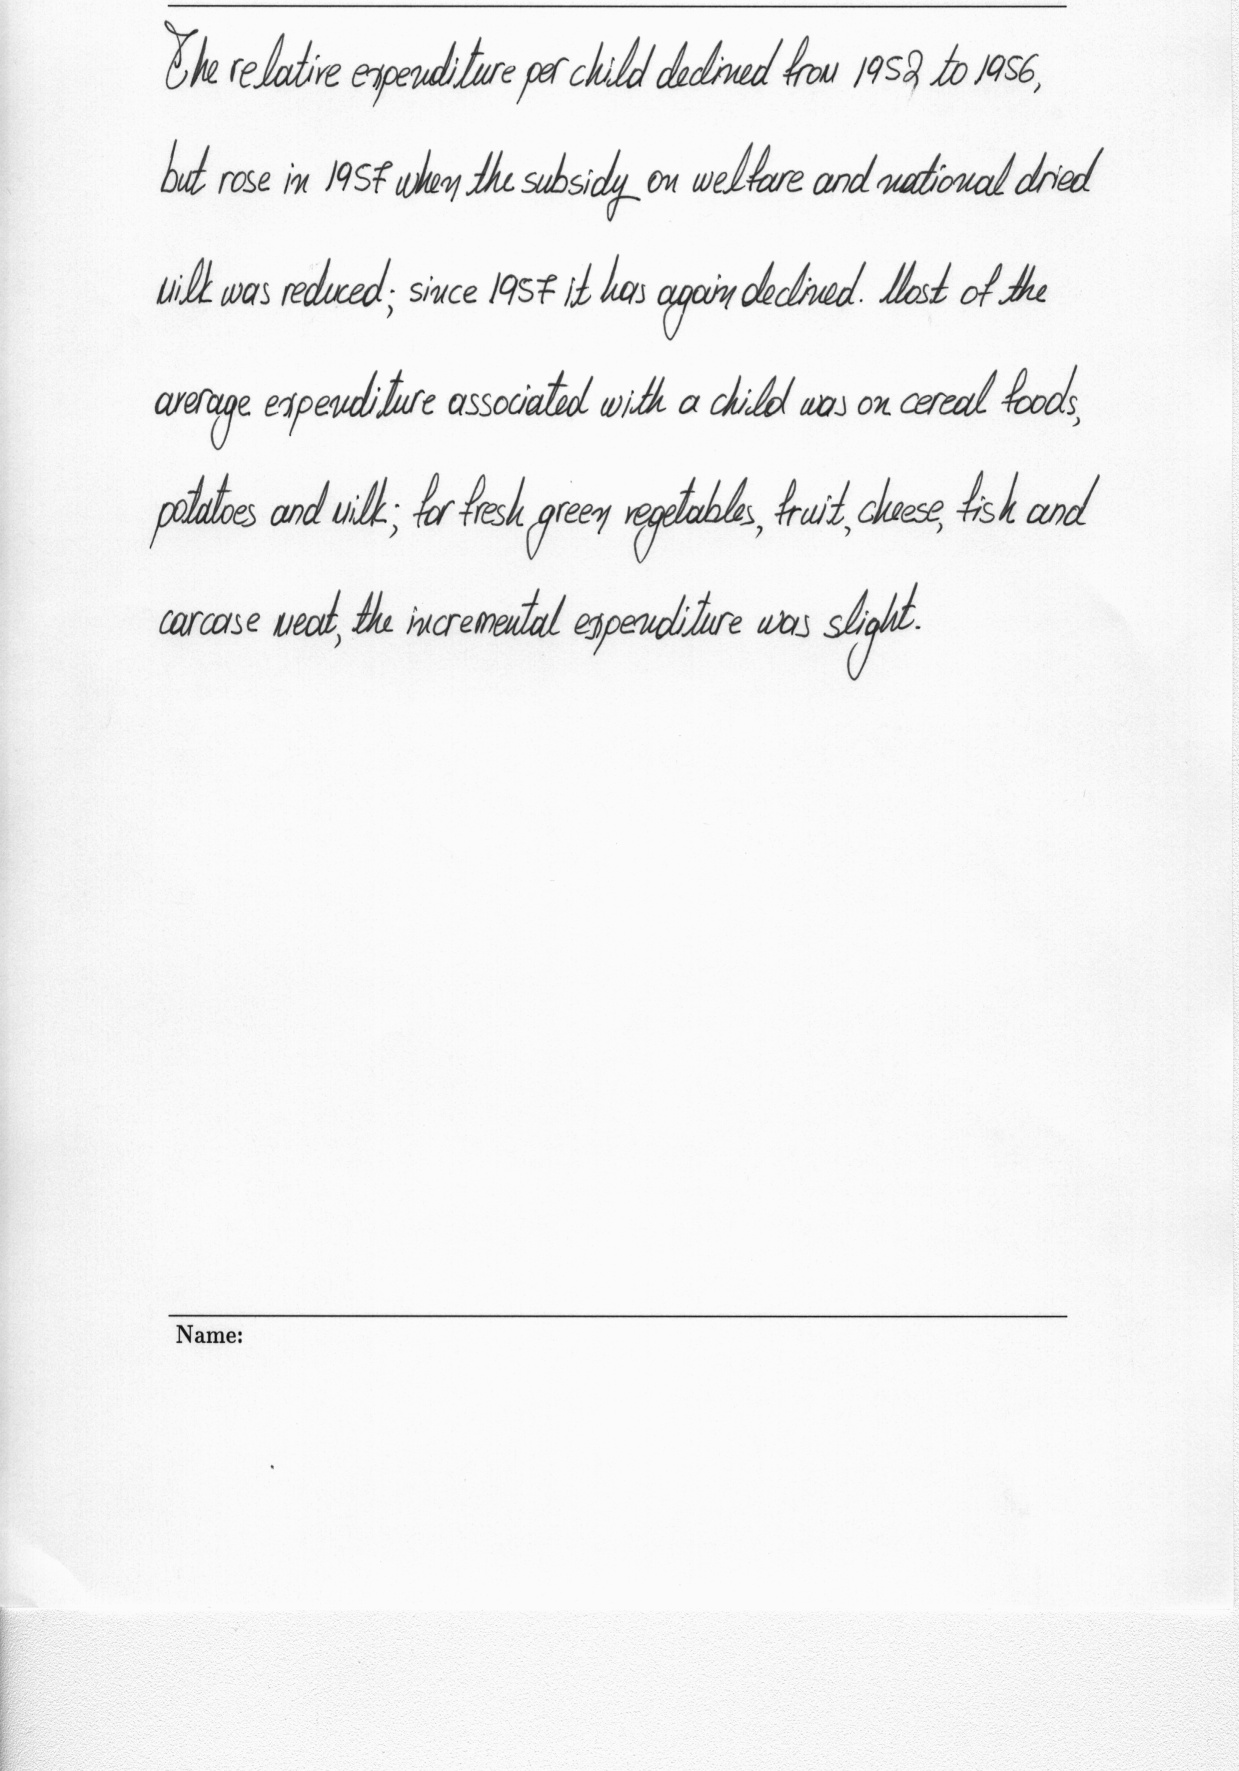 The relative expenditure per child declined from 1952 to 1956,
but rose in 1957 when the subsidy on welfare and national dried
milk was reduced; since 1957 it has again declined. Most of the
average expenditure associated with a child was on cereal foods,
potatoes and milk; for fresh green vegetables, fruit, cheese, fish and
carcase meat, the incremental expenditure was slight.
Name: